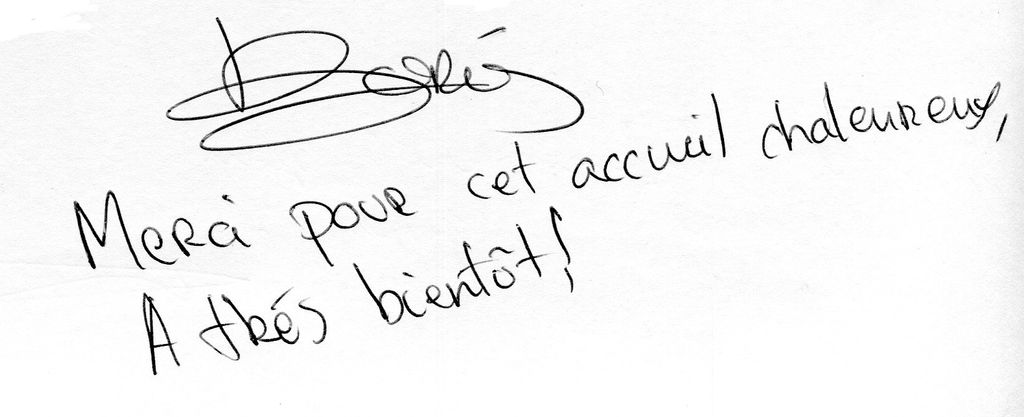 Boris
Merci pour cet accueil chaleureux,
A trés bientôt!